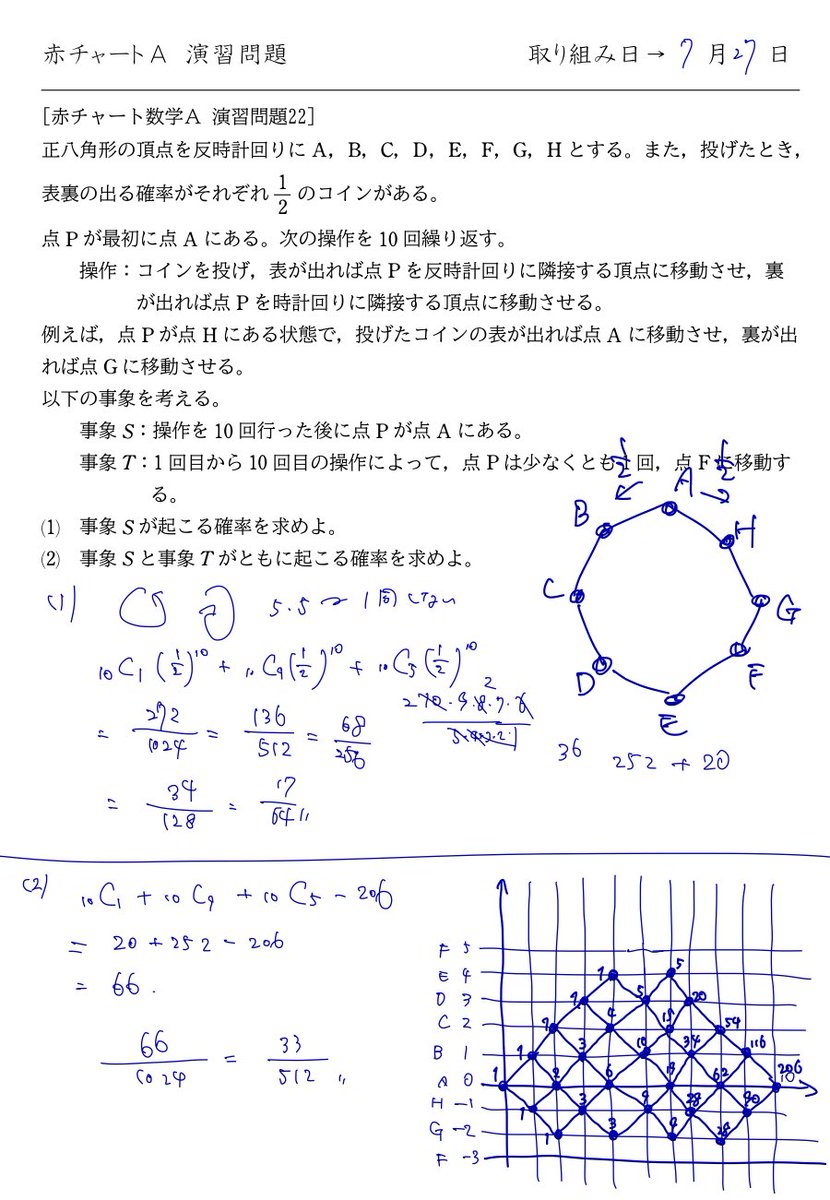 赤チャートA 演習問題 取り組み日→ 7月27日
[赤チャート数学A 演習問題22]
正八角形の頂点を反時計回りに A，B，C，D，E，F，G，H とする。また，投げたとき，
表裏の出る確率がそれぞれ 1/2 のコインがある。
点 P が最初に点 A にある。次の操作を 10 回繰り返す。
操作：コインを投げ，表が出れば点 P を反時計回りに隣接する頂点に移動させ，裏
が出れば点 P を時計回りに隣接する頂点に移動させる。
例えば，点 P が点 H にある状態で，投げたコインの表が出れば点 A に移動させ，裏が出
れば点 G に移動させる。
以下の事象を考える。
事象 S：操作を 10 回行った後に点 P が点 A にある。
事象 T：1 回目から 10 回目の操作によって，点 P は少なくとも 1 回，点 F に移動す
る。
(1) 事象 S が起こる確率を求めよ。
(2) 事象 S と事象 T がともに起こる確率を求めよ。
1/2 1/2
A
B H
C G
D F
E
(1) 5.5 〜 1回
10C1 (1/2)^10 + 10C9 (1/2)^10 + 10C5 (1/2)^10
= 272/1024 = 136/512 = 68/256
36 252 + 20
= 34/128 = 17/64 〃
(2) 10C1 + 10C9 + 10C5 − 206
= 20 + 252 − 206
= 66.
66/1024 = 33/512 〃
F 5
E 4 1 5
D 3 1 5 20
C 2 1 4 15 54
B 1 1 3 10 34 116
A 0 1 2 6 19 62 206
H −1 1 3 9 28 90
G −2 1 3 9 28
F −3